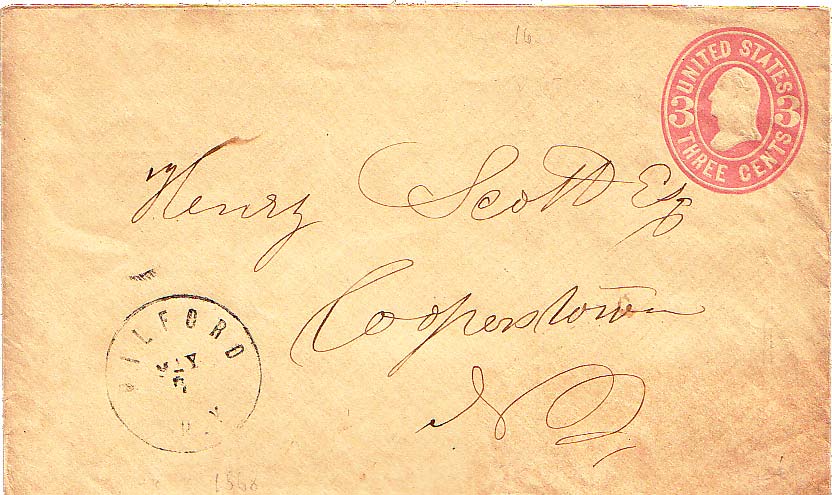 16
UNITED STATES
3 3
THREE CENTS
Henry Scott Esq
Cooperstown
NY
MILFORD
MAY
N.Y.